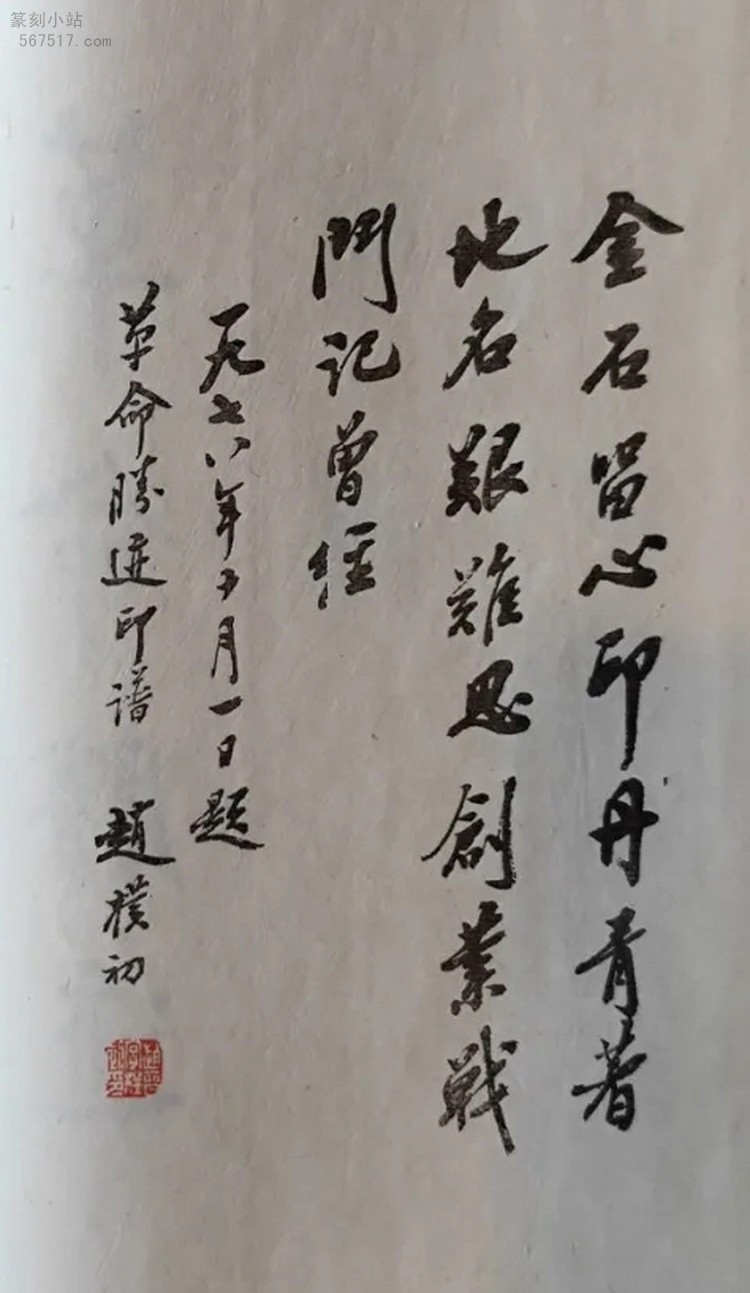 篆刻小站
567517.com
金石留心印丹青著
地名艱難思創業戰
鬥記曾經
一九七八年十月一日題
革命勝迹印譜 趙樸初